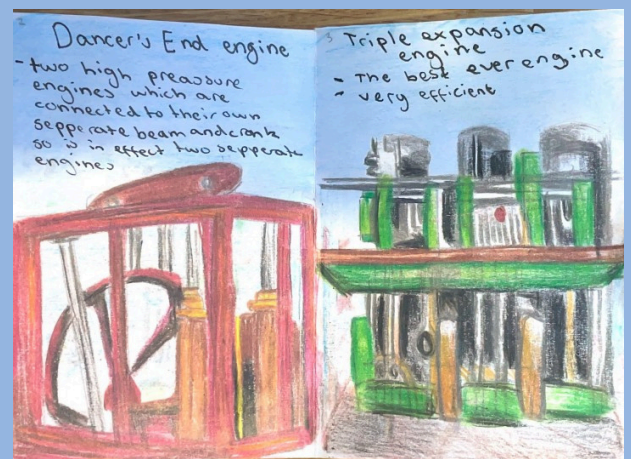 2
Dancer's End engine
- two high preassure
engines which are
connected to their own
sepperate beam and crank
so is in effect two sepperate
engines
3 Triple expansion
engine
- The best ever engine
- very efficient